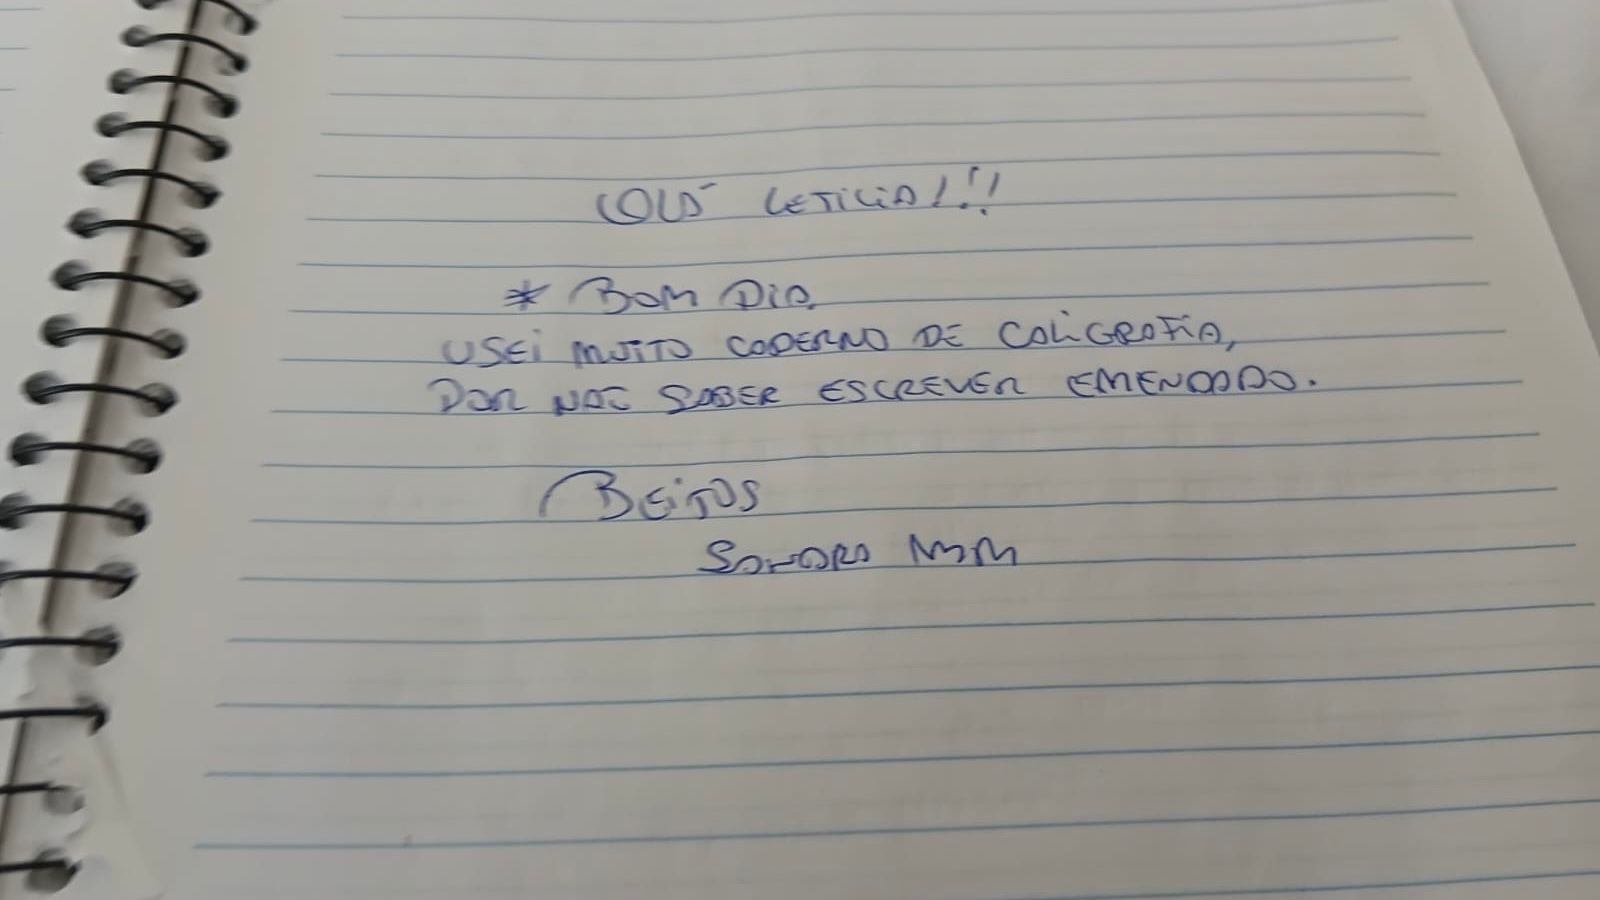 OLÁ LETICIA!!!
* BOM DIA.
USEI MUITO CADERNO DE CALIGRAFIA,
POR NÃO SABER ESCREVER EMENDADO.
BEIJOS
SANDRA